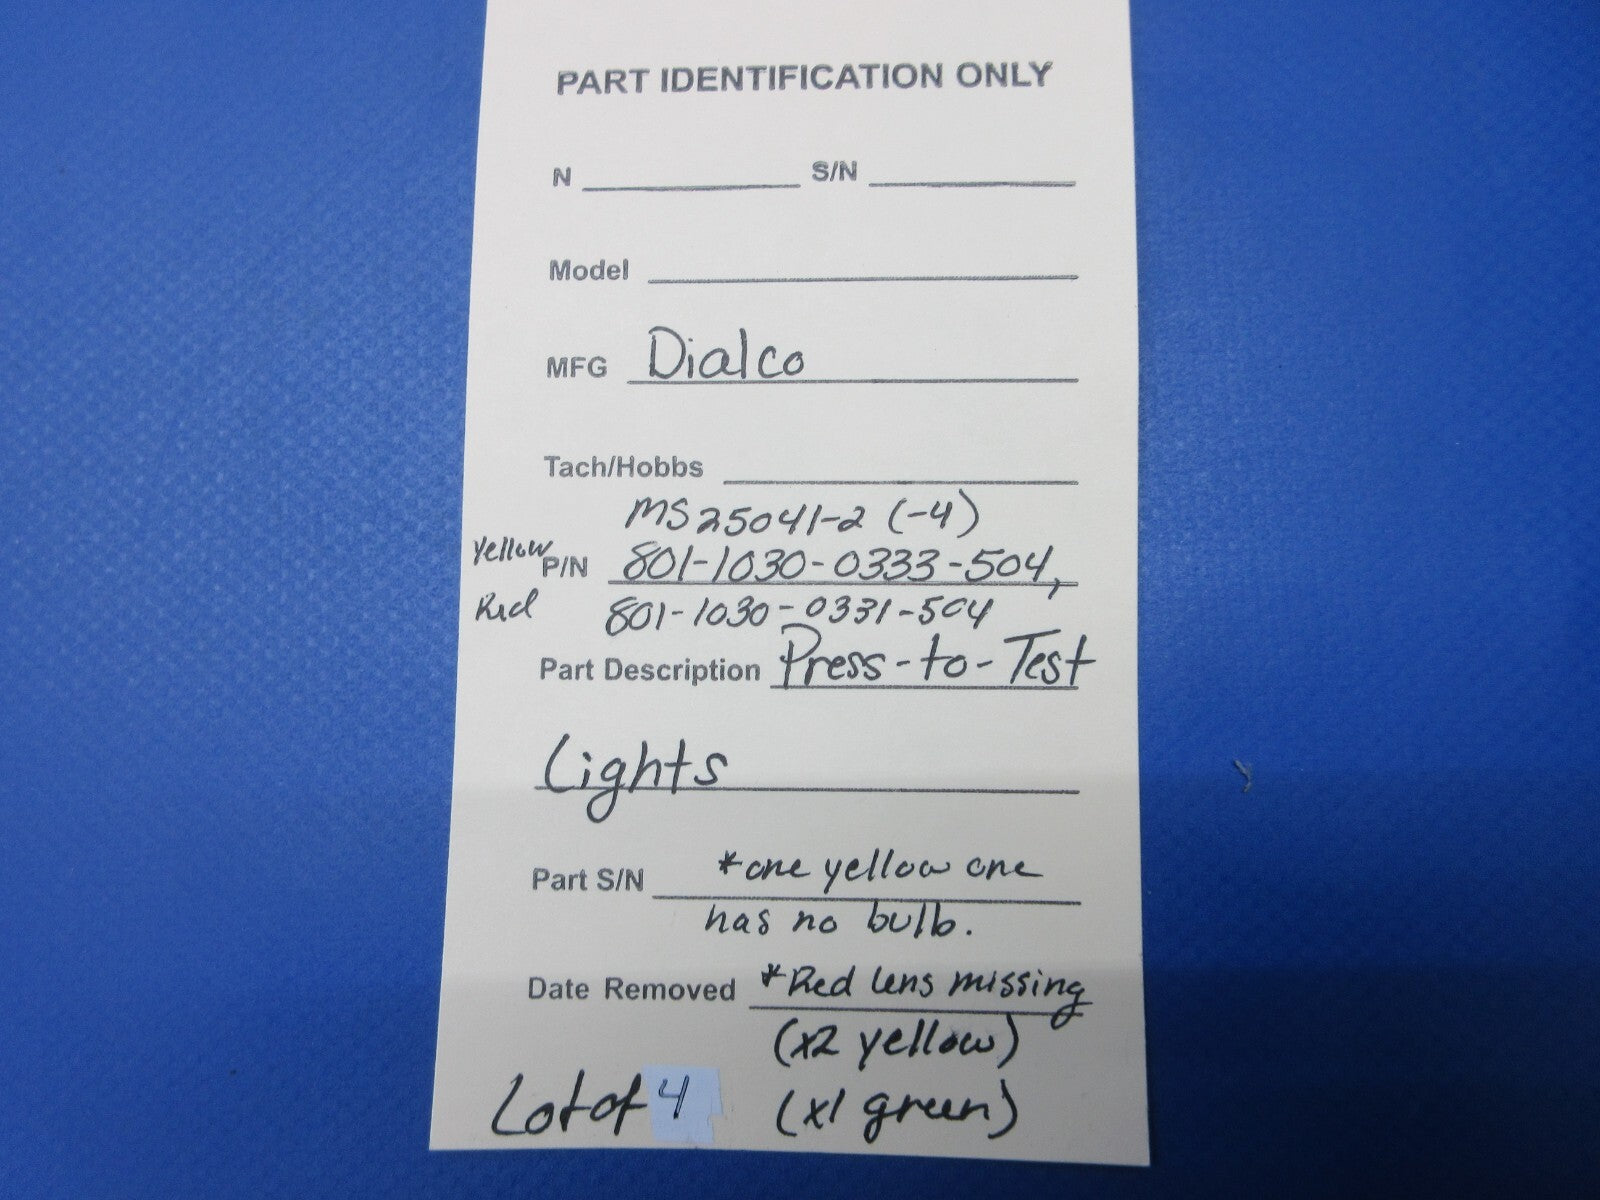 PART IDENTIFICATION ONLY
N S/N
Model
MFG Dialco
Tach/Hobbs
MS25041-2 (-4)
Yellow P/N 801-1030-0333-504,
Red 801-1030-0331-504
Part Description Press-to-Test
Lights
Part S/N *one yellow one
has no bulb.
Date Removed *Red lens missing
(x2 yellow)
Lot of 4 (x1 green)